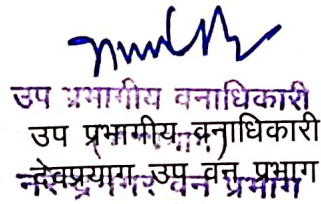 उप प्रभागीय वनाधिकारी
उप प्रभागीय वनाधिकारी
देवप्रयाग उप वन प्रभाग
वन प्रभाग